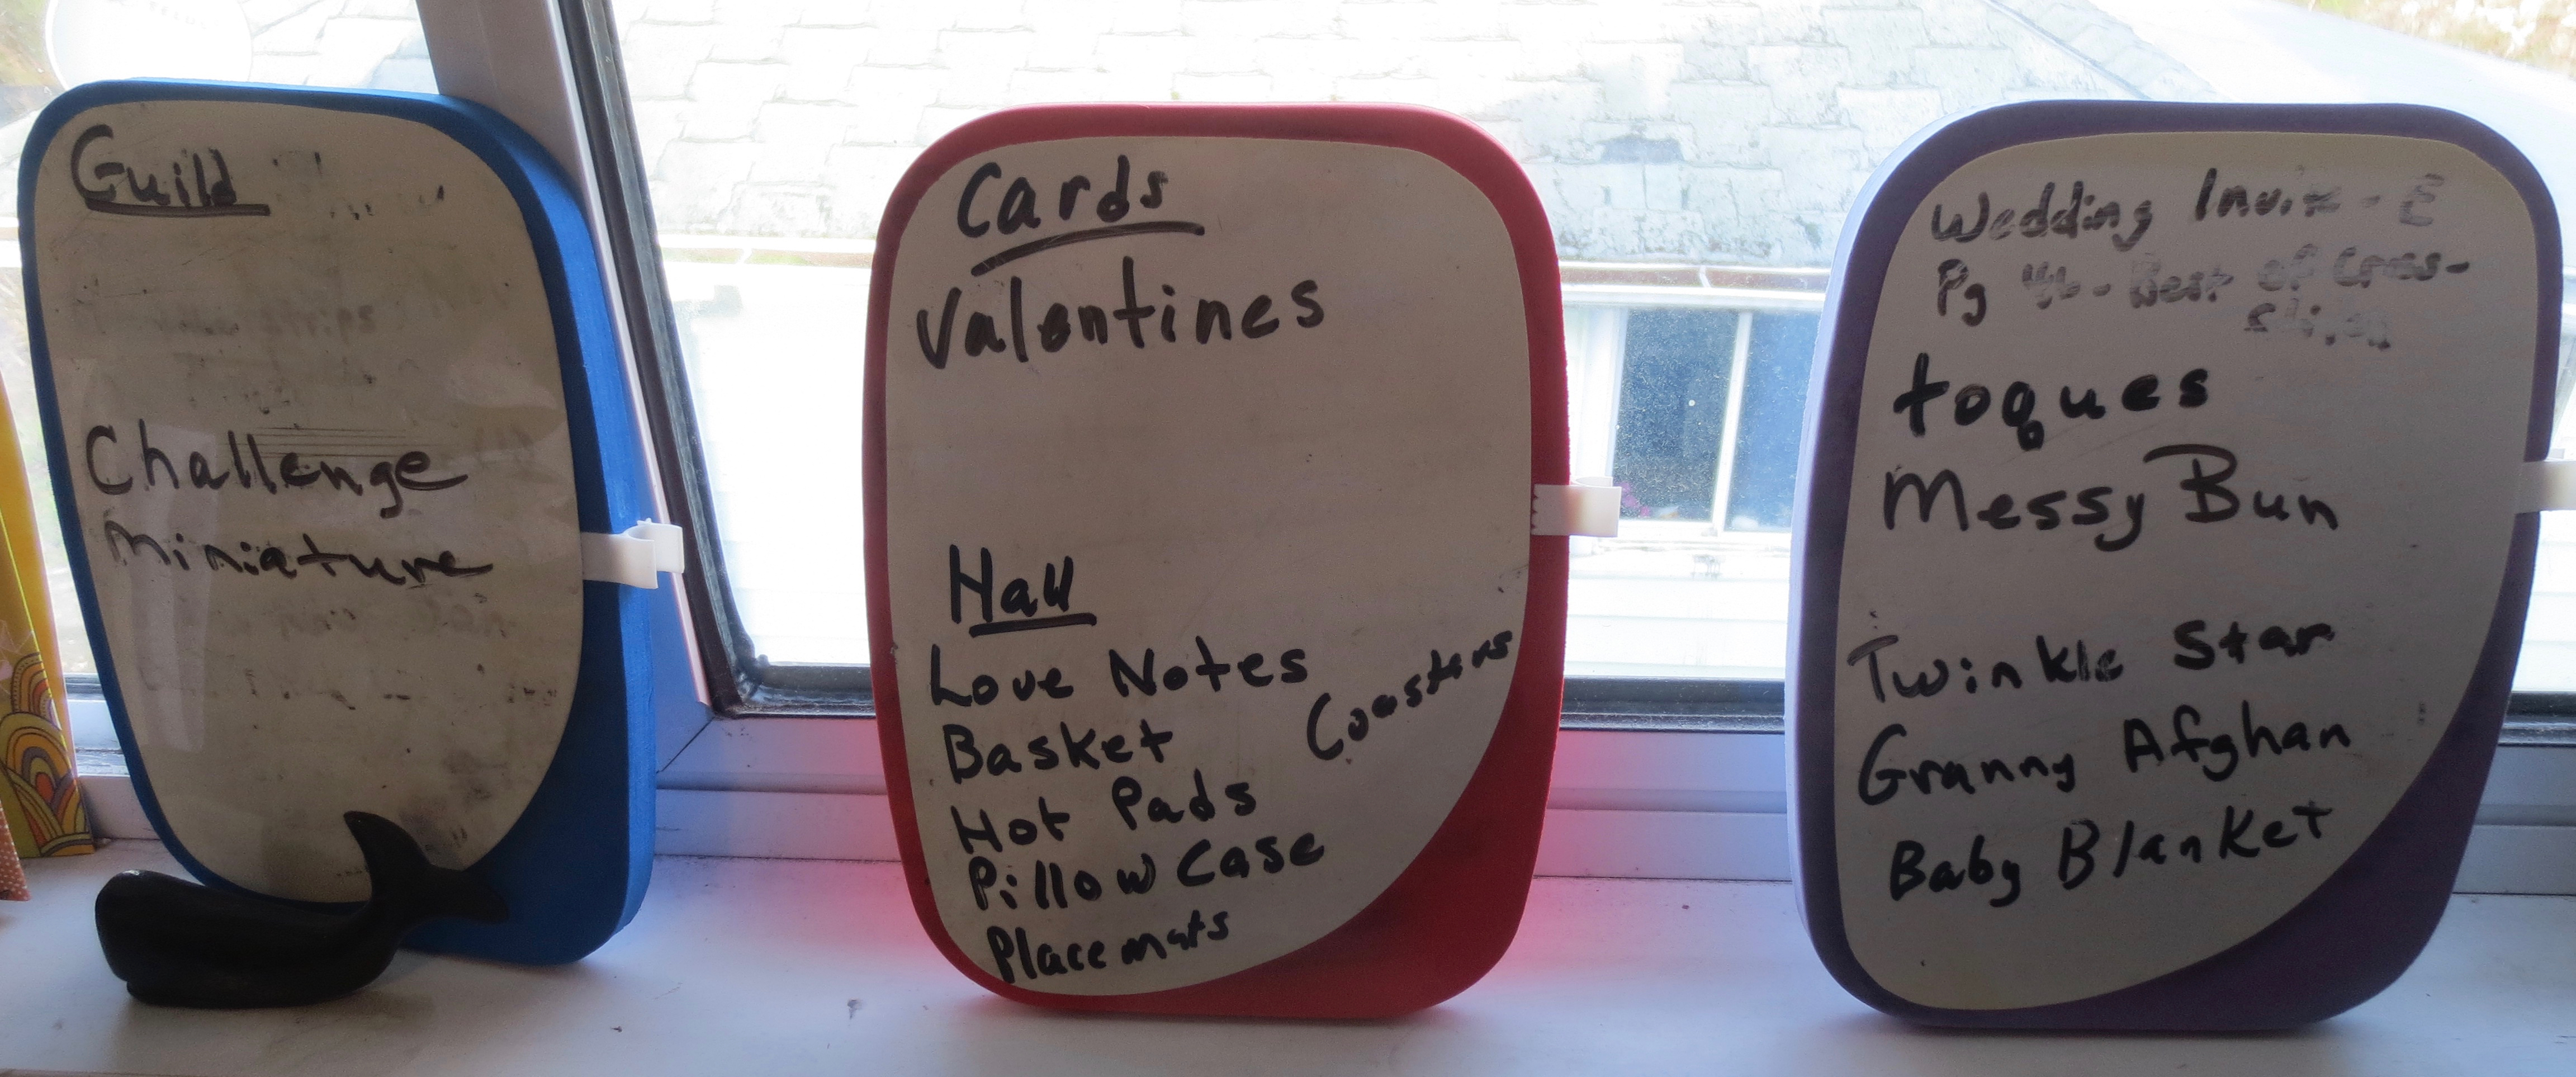 Guild
strips
Challenge
Miniature
Cards
Valentines
Hall
Love Notes
Coasters
Basket
Hot Pads
Pillow Case
Placemats
Wedding Invite - E
Pg 46 - Best of Cross-
stitch
toques
Messy Bun
Twinkle Star
Granny Afghan
Baby Blanket